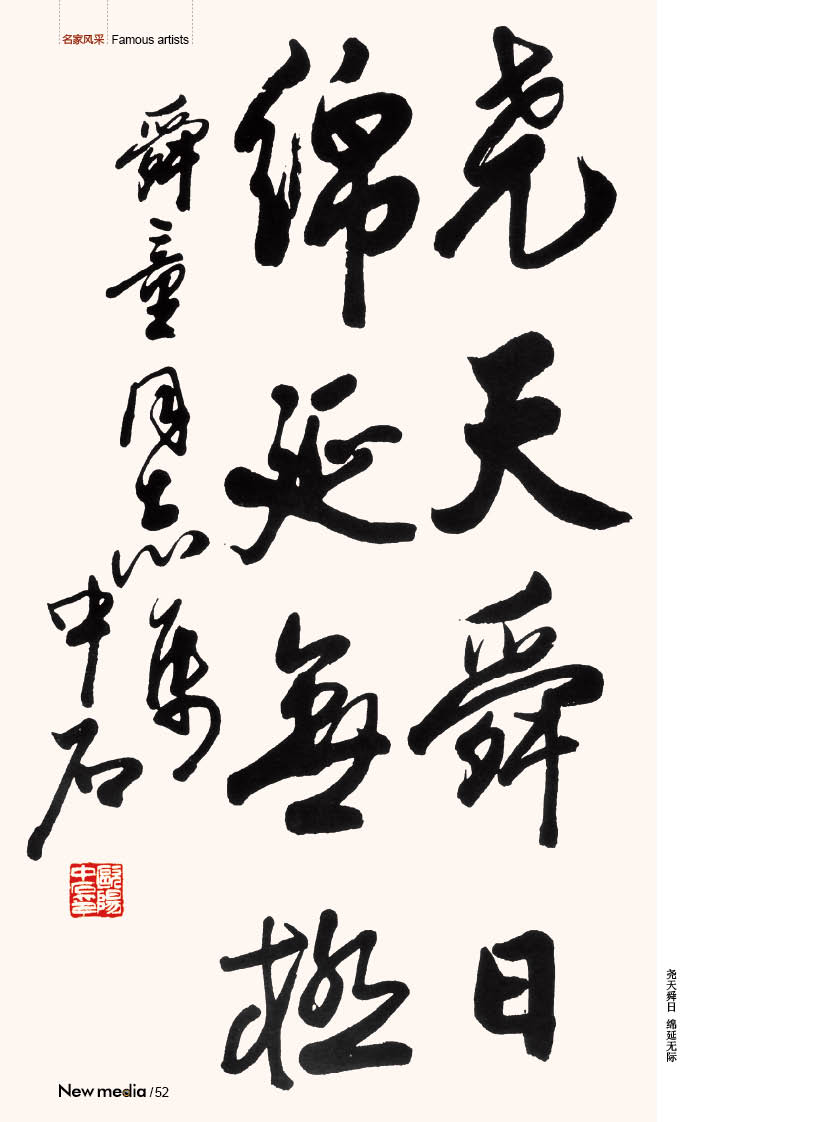 名家风采
Famous artists
尧天舜日
绵延無極
舜童同志属
中石
歐陽
中石
尧天舜日 绵延无际
New media /52